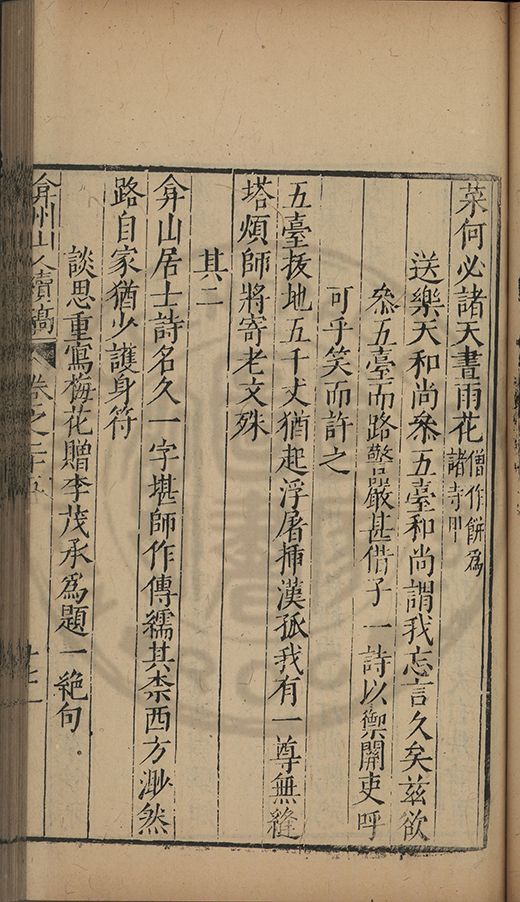 菜何必諸天晝雨花僧作餅爲
諸寺
送樂天和尚叅五臺和尚謂我忘言久矣兹欲
叅五臺而路警嚴甚借子一詩以禦關吏呼
可乎笑而許之
五臺拔地五千丈猶起浮屠揷漢孤我有一尊無縫
塔煩師將寄老文殊
其二
弇山居士詩名久一字堪師作傳繻其柰西方渺然
路自家猶少護身符
談思重寫梅花贈李茂承爲題一絶句
弇州山人續稿 卷之二十五